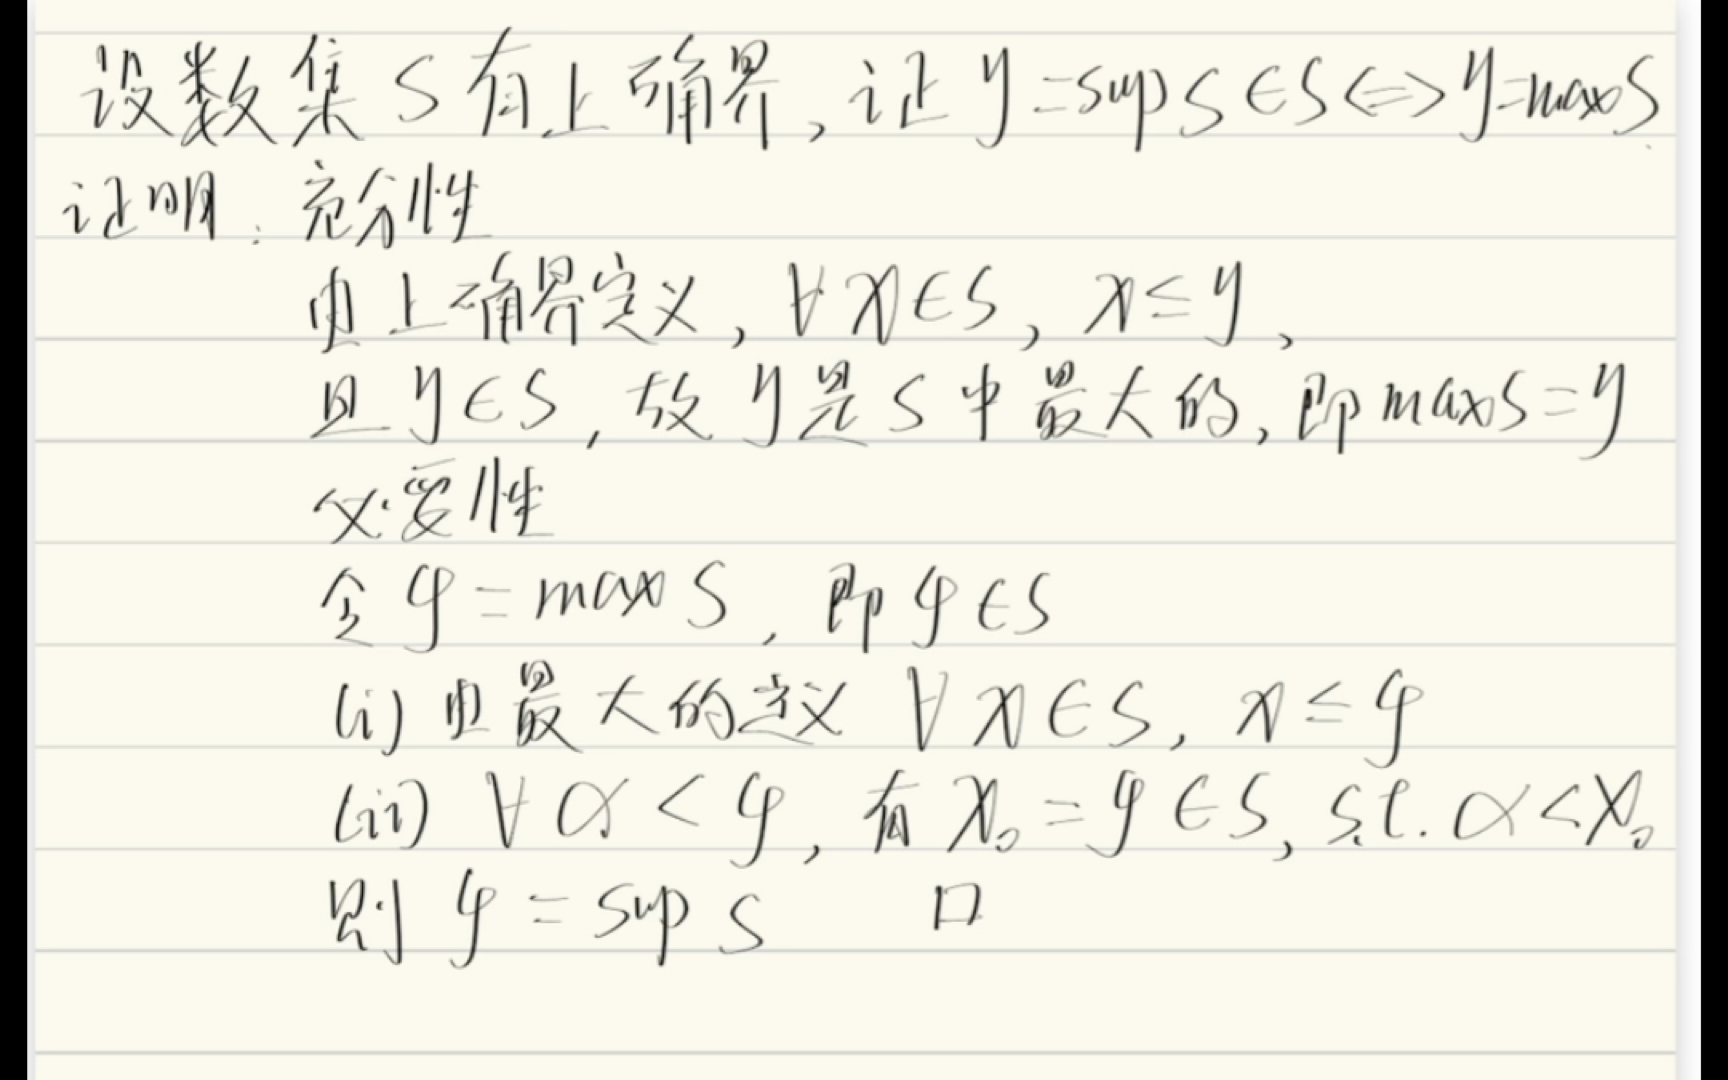 设数集 S 有上确界, 证 y = sup S ∈ S <=> y = max S.
证明: 充分性
由上确界定义, ∀ x ∈ S, x ≤ y,
且 y ∈ S, 故 y 是 S 中最大的, 即 max S = y
必要性
令 y = max S, 即 y ∈ S
(i) 由最大的定义 ∀ x ∈ S, x ≤ y
(ii) ∀ α < y, 有 x₀ = y ∈ S, s.t. α < x₀
则 y = sup S □